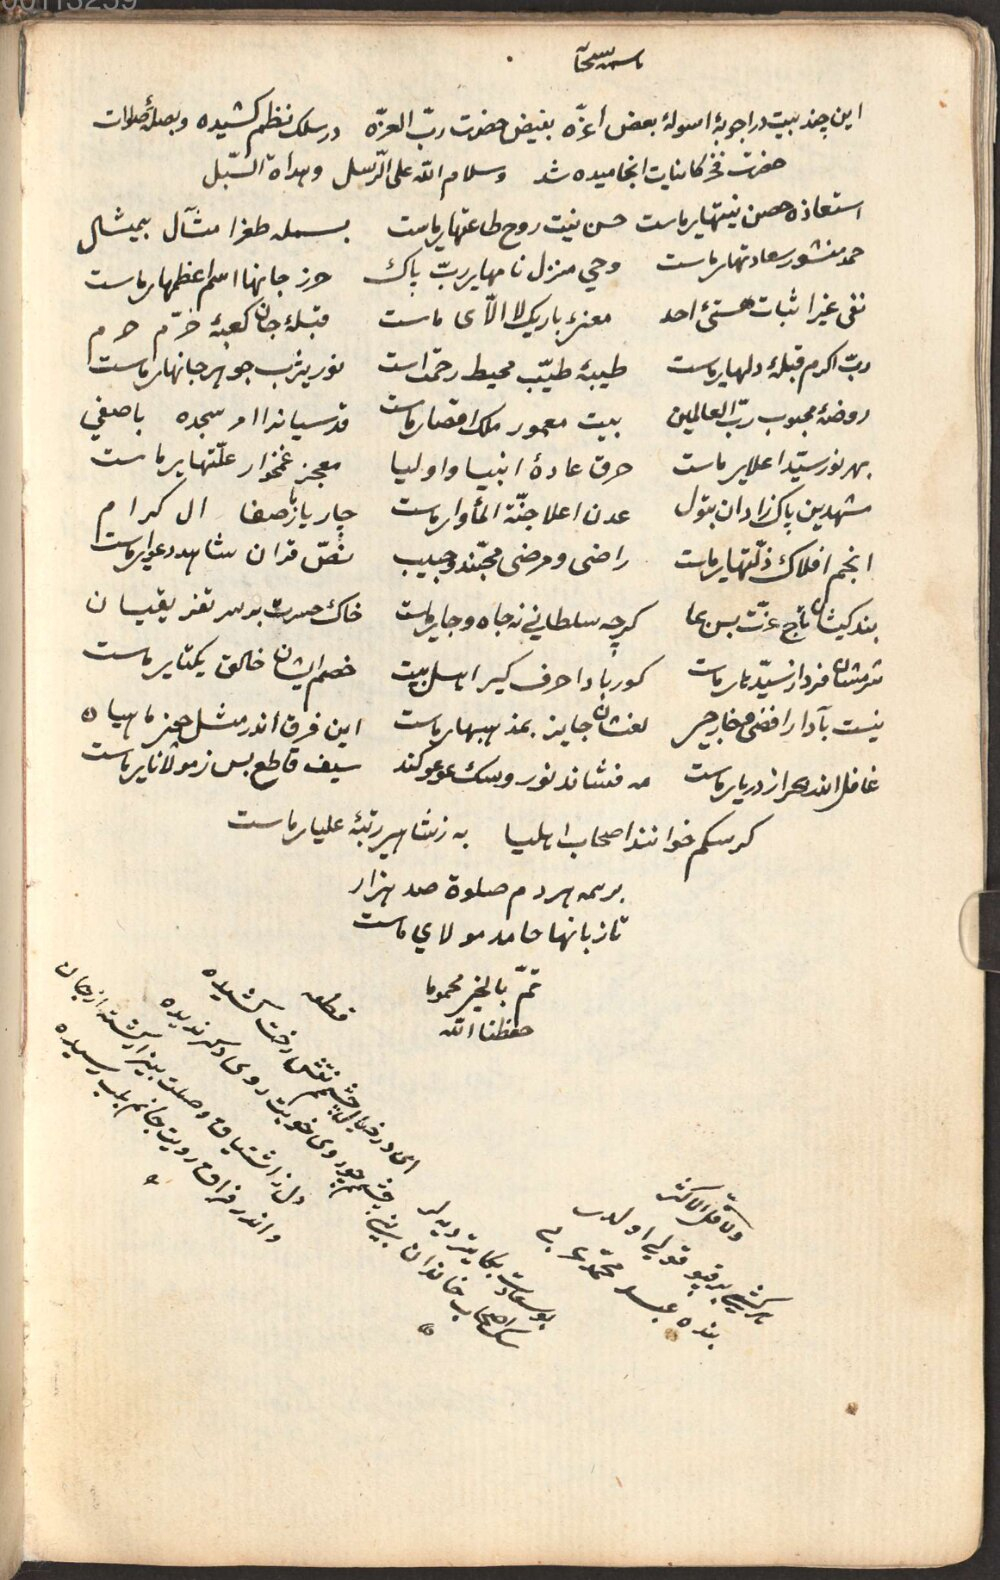 00113259
باسمه سبحانه
این چند بیت در اجوبهٔ اسولهٔ بعض اعزّه بفیض حضرت ربّ العزّه در سلک نظم کشیده و بصلهٔ صلوات
حضرت فخر کاینات انجامیده شد وسلام الله علی الرّسل وهداة السّبل
استعاذه حصن نیتهای ماست حسن نیت روح طاعتهای ماست بسمله طغرا مثال بیمثال
حمد منشور سعادتهای ماست وحی منزل نامهای ربّ پاک حرز جانها اسم اعظمهای ماست
نفی غیر اثبات هستیٔ احد معنیٔ باریک لا الّای ماست قبلهٔ جان کعبهٔ خرّم حرم
ربّ اکرم قبلهٔ دلهای ماست طیبهٔ طیّب محیط رحمت است نور یثرب جوهر جانهای ماست
روضهٔ محبوب ربّ العالمین بیت معمور ملک اقصای ماست قدسیانرا امر سجده با صفی
بهر نور سیّد اعلای ماست خرق عادهٔ انبیا و اولیا معجز غمخوار علّتهای ماست
مشهدین پاک زادان بتول عدن اعلا جنّة المأوای ماست چار یار با صفا ال کرام
انجم افلاک ذلّتهای ماست راضی و مرضی محبّند و حبیب نصّ قران شاهد دعوای ماست
بندکیشان تاج عزّت بس بما کرچه سلطانی نه جاه و جای ماست خاک حسرت بر سر تفریقیان
شرمشان فردا ز سیّدهای ماست کور بادا حرف کیر اهل بیت خصم ایشان خالق یکتای ماست
نیست بآدار افضی و خارجی لعنشان جایز بمذهبهای ماست این فرق اندر مثل چون ماهیان
غافل اندر از دریای ماست مه فشاند نور و سک عوعو کند سیف قاطع بس ز مولانای ماست
کر سکم خوانند اصحاب اهلبیا به ز شاهی رتبهٔ علیای ماست
بر همه هر دم صلوة صد هزار
تا زبانها حامد مولای ماست
تمّ بالخیر محموما
حفظنا الله
قطعه
ای در خیال چشمم نقش رخت کشیده
چشمم چو روی خوبت روی دکر ندیده
دل ز اشتیاق وصلت بیزار کشته از جان
و اندر فراق رویت جانم بلب رسیده
بو سعادت بکا یتر دیدیلر
سک اصحاب خاندان بنی
وللاقل الاکثر
هر کشی بر قپو قولی اولدی
بنده عبد محمد عربی